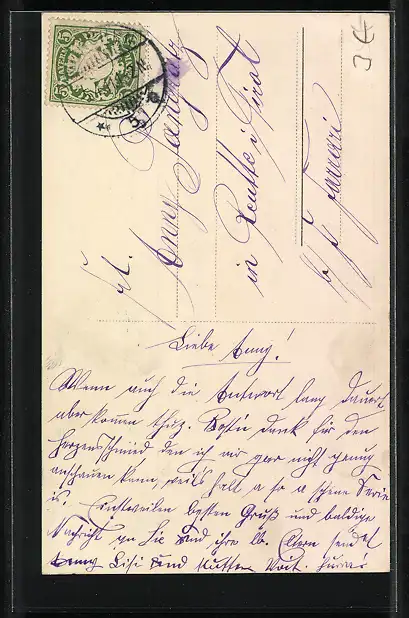 Frl.
Anny
in Reutte i/ Tirol
b/ H.
3 €
5 BAYERN 5
Liebe Anny!
Wenn auch die Antwort lang dauert
aber kommen thuts. Besten dank für den
Herzensschmied den ich mir gar nicht genug
anschauen kann, weil's halt a so a schene Serie
is. Einstweilen besten Gruß und baldige
Nachricht an Sie und ihre lb. Eltern sendet
Lisi und